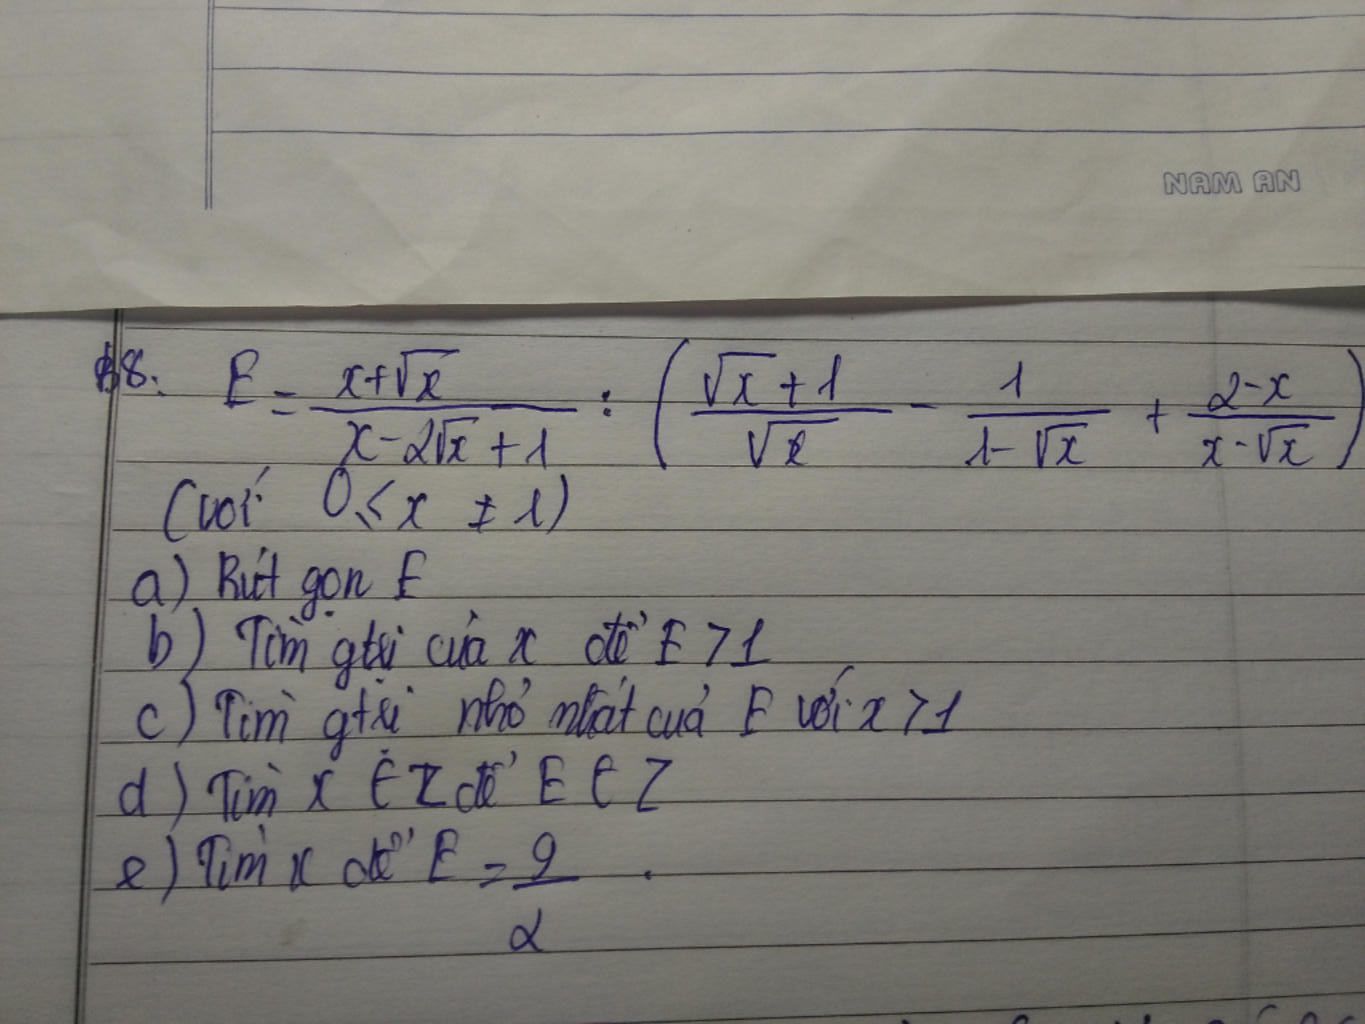 NAM AN
B8. E = \frac{x+\sqrt{x}}{x-2\sqrt{x}+1} : \left( \frac{\sqrt{x}+1}{\sqrt{x}} - \frac{1}{1-\sqrt{x}} + \frac{2-x}{x-\sqrt{x}} \right)
(với 0 ≤ x ≠ 1)
a) Rút gọn E
b) Tìm gtrị của x để E > 1
c) Tìm gtrị nhỏ nhất của E với x > 1
d) Tìm x ∈ Z để E ∈ Z
e) Tìm x để E = \frac{9}{2}.